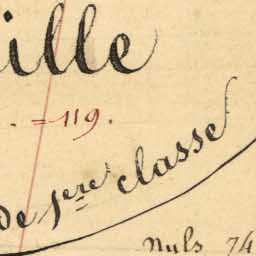 ille
. = 119.
de 1ère classe
Nuls 74